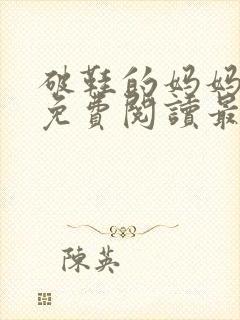 破鞋的妈妈
免費閱讀最
陳英